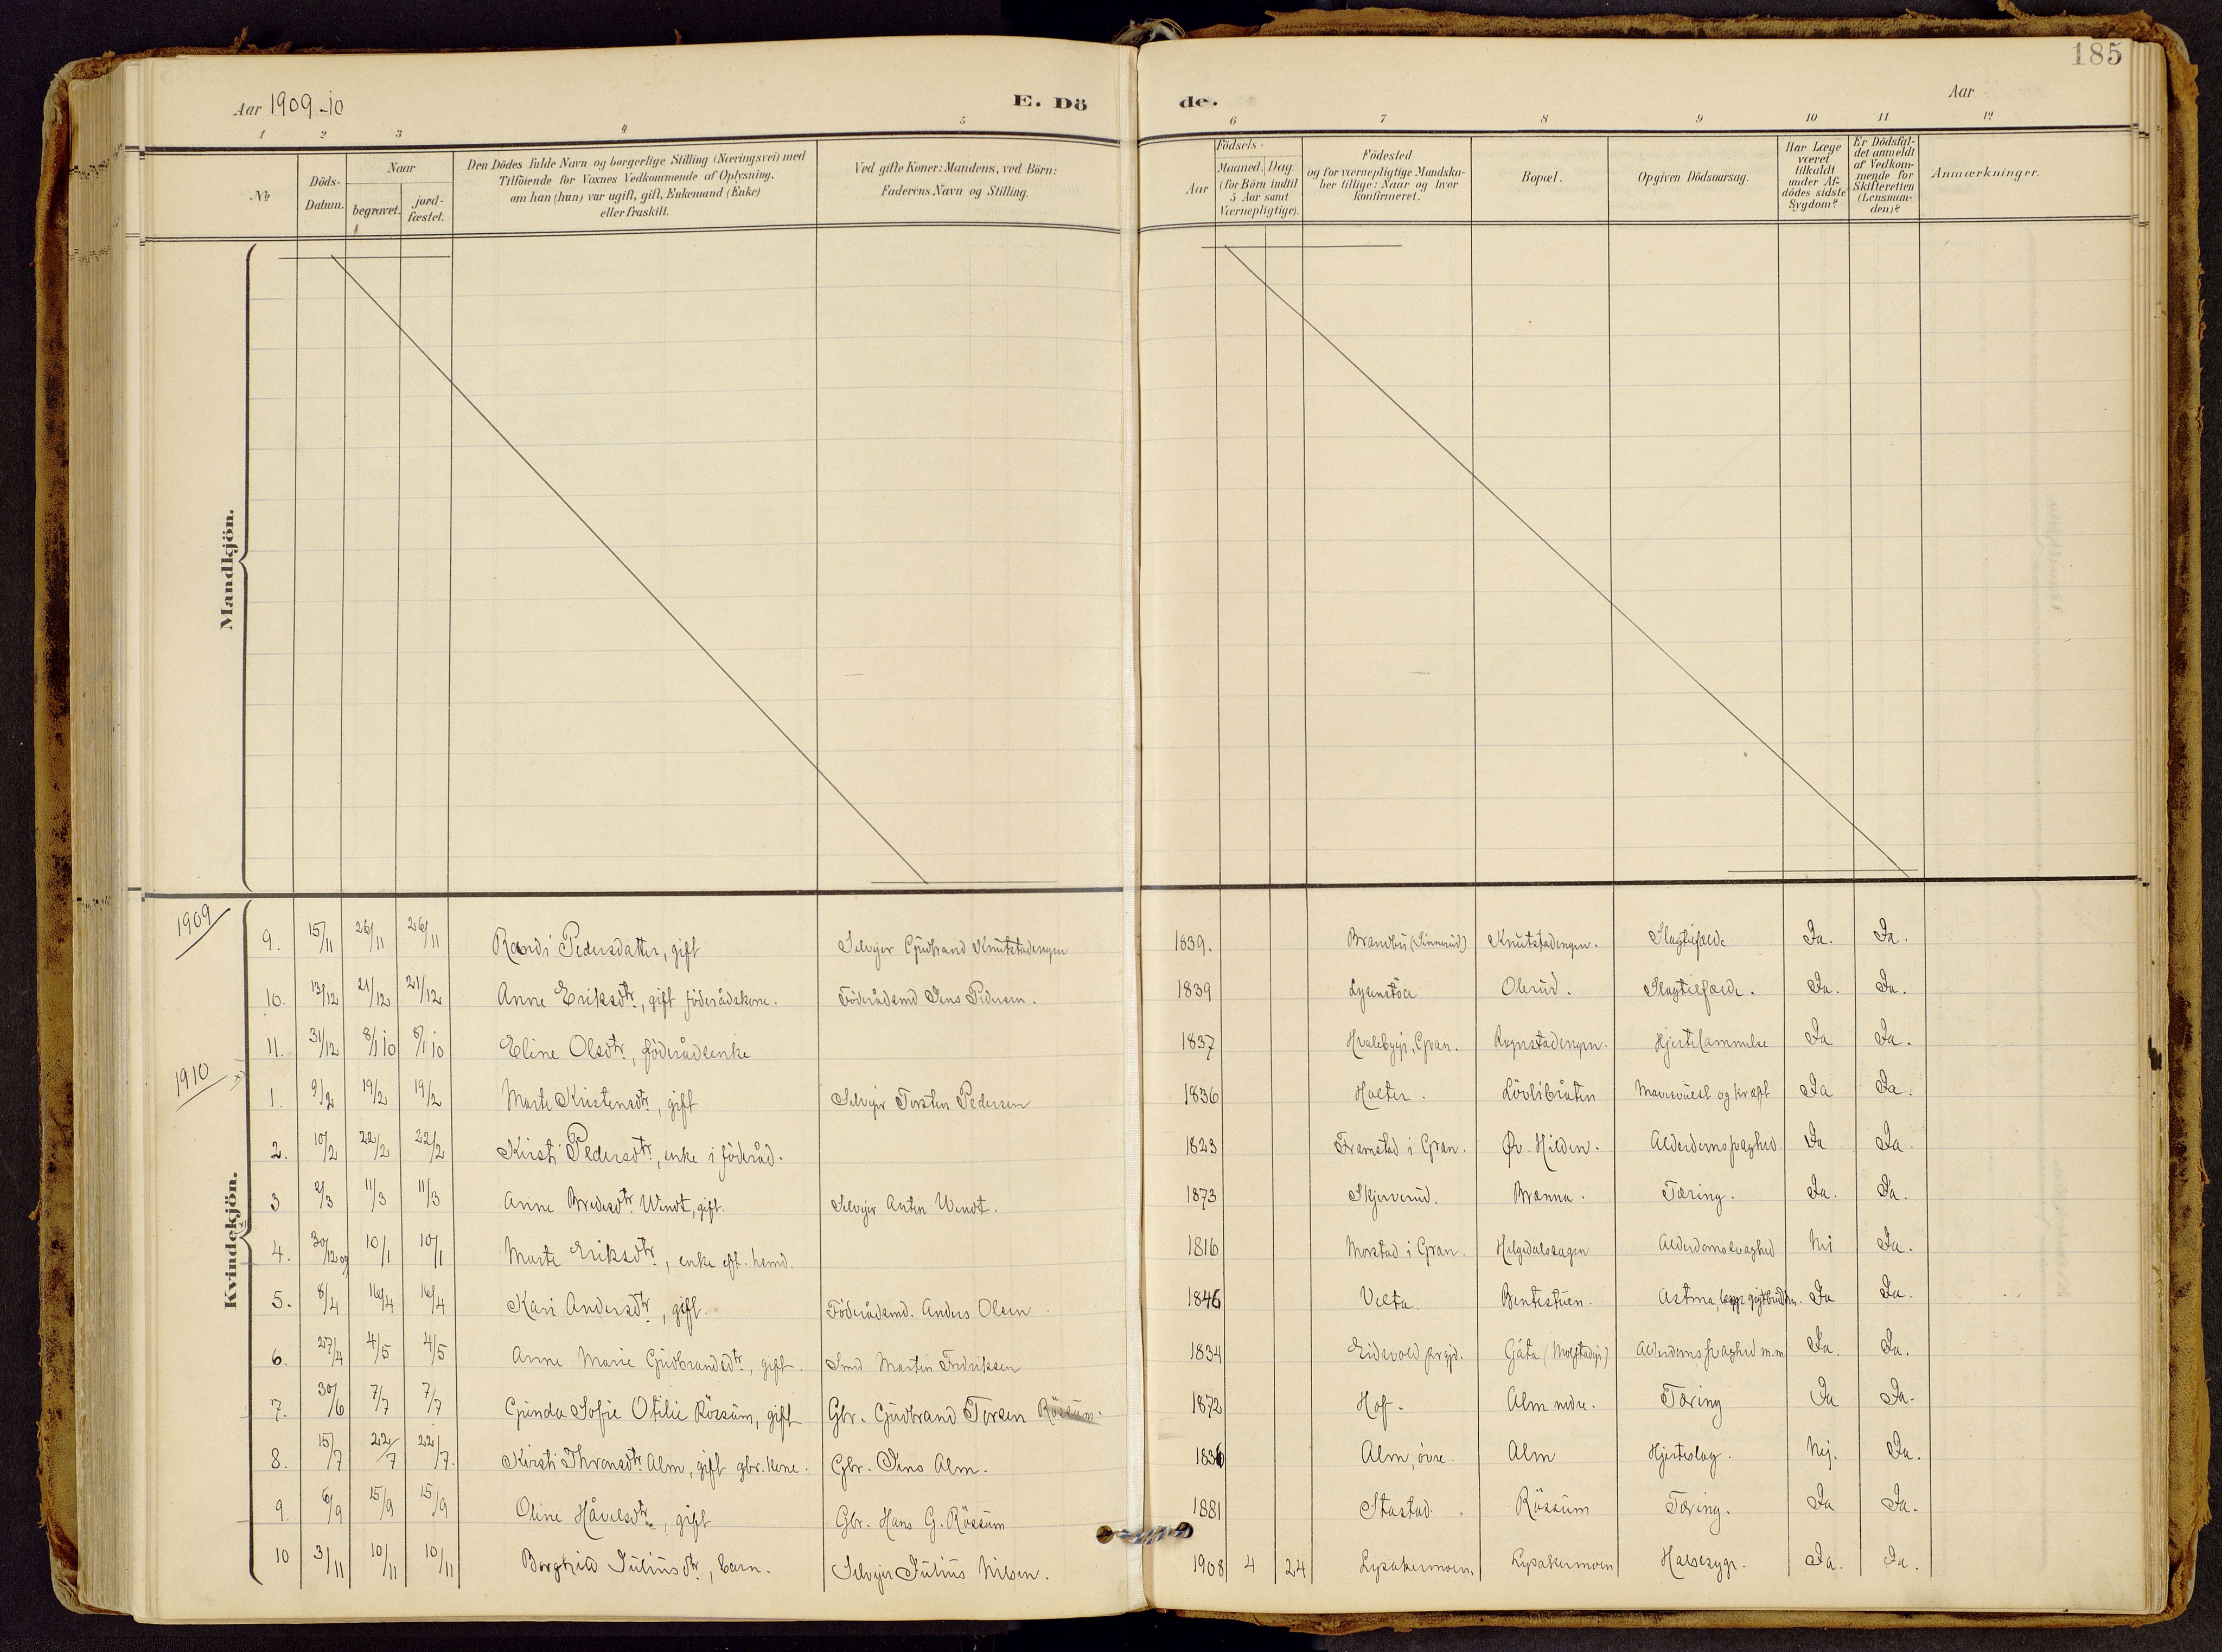 185
Aar 1909-10
E. Dö
de.
Aar
1 2 3 4 5 6 7 8 9 10 11 12
№
Döds-Datum.
Naar
begravet.
jord-fæstet.
Den Dödes fulde Navn og borgerlige Stilling (Næringsvei) med
Tilföiende for Voxnes Vedkommende af Oplysning,
om han (hun) var ugift, gift, Enkemand (Enke)
eller fraskilt.
Ved gifte Koner: Mandens, ved Börn:
Faderens Navn og Stilling.
Födsels-
Aar
Maaned. Dag.
(for Börn indtil
5 Aar samt
Værnepligtige).
Födested
og for værnepligtige Mandska-
ber tillige: Naar og hvor
Konfirmeret.
Bopæl.
Opgiven Dödsaarsag.
Har Læge
været
tilkaldt
under Af-
dödes sidste
Sygdom?
Er Dödsfal-
det anmeldt
af Vedkom-
mende for
Skifteretten
(Lensman-
den)?
Anmærkninger.
Mandkjön.
Kvindekjön.
1909
9. 15/11 26/11 26/11 Randi Pedersdatter, gift Selvejer Gudbrand Knutstadengen 1839. Brandbu (Sinnerud) Knutstadengen. Slagtilfælde Ja. Ja.
10. 13/12 21/12 21/12 Anne Eriksdtr., gift föderådskone. Föderådsmd Jens Pedersen. 1839 Olerud. Slagtilfælde. Ja. Ja.
11. 31/12 8/1 10 8/1 10 Eline Olsdtr., föderådsenke 1837 Hvalebygd, Gran. Hjertelammelse Ja Ja.
1910
1. 9/2 19/2 19/2 Marte Kristensdtr., gift Selvejer Torsten Pedersen 1836 Holter. Lövlibråten Mavesvulst og kræft Ja Ja.
2. 10/2 22/2 22/2 Kirsti Pedersdtr., enke i föderåd. 1823 Framstad i Gran. Øv. Hilden. Alderdomssvaghed Ja Ja.
3 2/3 11/3 11/3 Anne Bredesdtr. Wendt, gift. Selvejer Anton Wendt. 1873 Skjerverud. Brænna. Tæring. Ja. Ja.
4. 30/12 09 10/1 10/1 Marte Eriksdtr., enke eft. husmd. 1816 Morstad i Gran. Helgedalssagen Alderdomssvaghed Nej Ja.
5. 8/4 16/4 16/4 Kari Andersdtr., gift. Föderådsmd. Anders Olsen 1846 Velta. Bentestuen. Astma, Ja Ja.
6. 27/4 4/5 4/5 Anne Marie Gudbrandsdtr., gift. Smed Martin Fredriksen 1834 Eidsvold prgjd. Gåta Alderdomssvaghed m.m. Ja. Ja.
7. 30/6 7/7 7/7 Gunda Sofie Otilie Rössum, gift Gbr. Gudbrand Torsen Rössum. 1872 Hof. Alm nedre. Tæring Ja Ja.
8. 15/7 22/7 22/7. Kirsti Thronsdtr. Alm, gift gbr. kone. Gbr. Jens Alm. 1836 Alm, övre. Alm Hjerteslag. Nej. Ja.
9. 6/9 15/9 15/9 Oline Håvelsdtr., gift Gbr. Hans G. Rössum 1881 Stastad. Rössum Tæring. Ja Ja.
10 3/11 10/11 10/11 Borghild Juliusdtr., barn. Selvejer Julius Nilsen. 1908 4 24 Lysakermoen. Lysakermoen Halsesyge. Ja. Ja.